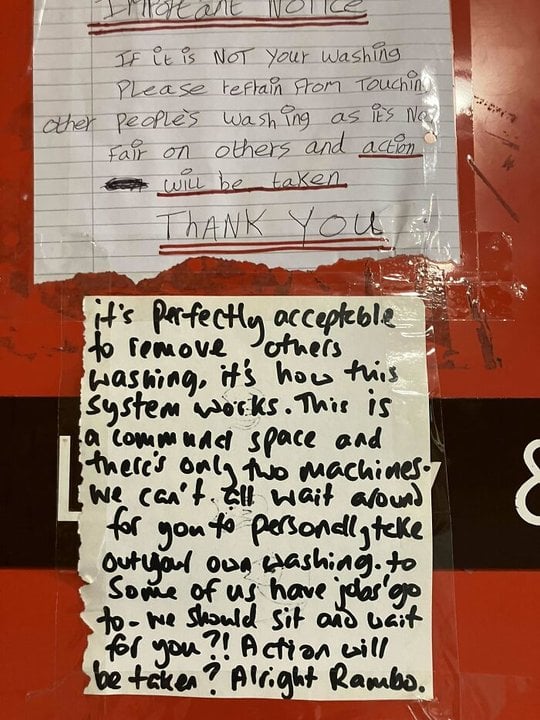 IMPORTANT NOTICE
If it is NOT your washing
Please refrain from Touchin
other People's washing as it's No
Fair on others and action
will be taken
THANK YOU
it's perfectly acceptable
to remove others
washing, it's how this
system works. This is
a communal space and
there's only two machines.
We can't all wait around
for you to personally take
out your own washing. to
Some of us have jobs go
to - we should sit and wait
for you?! Action will
be taken? Alright Rambo.
L
y
&